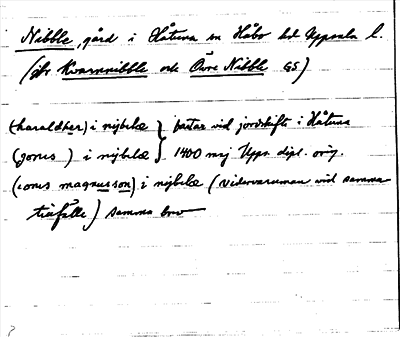 Nibble, gård i Håtuna sn Håbo hd Uppsala l.
(jfr Kvarnnibble och Övre Nibble GS)
(haraldher) i nijbelæ } fastar vid jordskifte i Håtuna
(gorus ) i nijbelæ } 1400 nrj Upps. dipl. orig.
(ionus magnusson) i nijbelæ (vidervaruman vid samma
tillfälle) samma brev